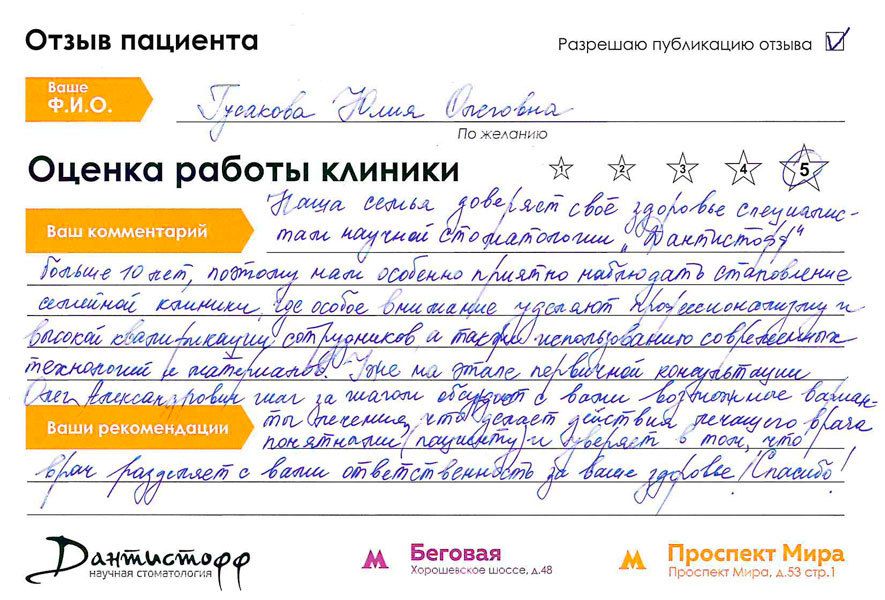 Отзыв пациента
Разрешаю публикацию отзыва
Ваше
Ф.И.О.
Гусакова Юлия Олеговна
По желанию
Оценка работы клиники
1 2 3 4 5
Наша семья доверяет своё здоровье специалис-
Ваш комментарий
там научной стоматологии „Дантистофф"
больше 10 лет, поэтому нам особенно приятно наблюдать становление
семейной клиники, где особое внимание уделяют профессионализму и
высокой квалификации сотрудников а также использованию современных
технологий и материалов. Уже на этапе первичной консультации
Олег Александрович шаг за шагом обсуждает с вами возможное вариан-
ты лечения, что делает действия лечащего врача
Ваши рекомендации
понятными (пациенту) и уверяет в том, что
врач разделяет с вами ответственность за ваше здоровье! Спасибо!
Дантистофф
научная стоматология
М Беговая
Хорошевское шоссе, д.48
М Проспект Мира
Проспект Мира, д.53 стр.1